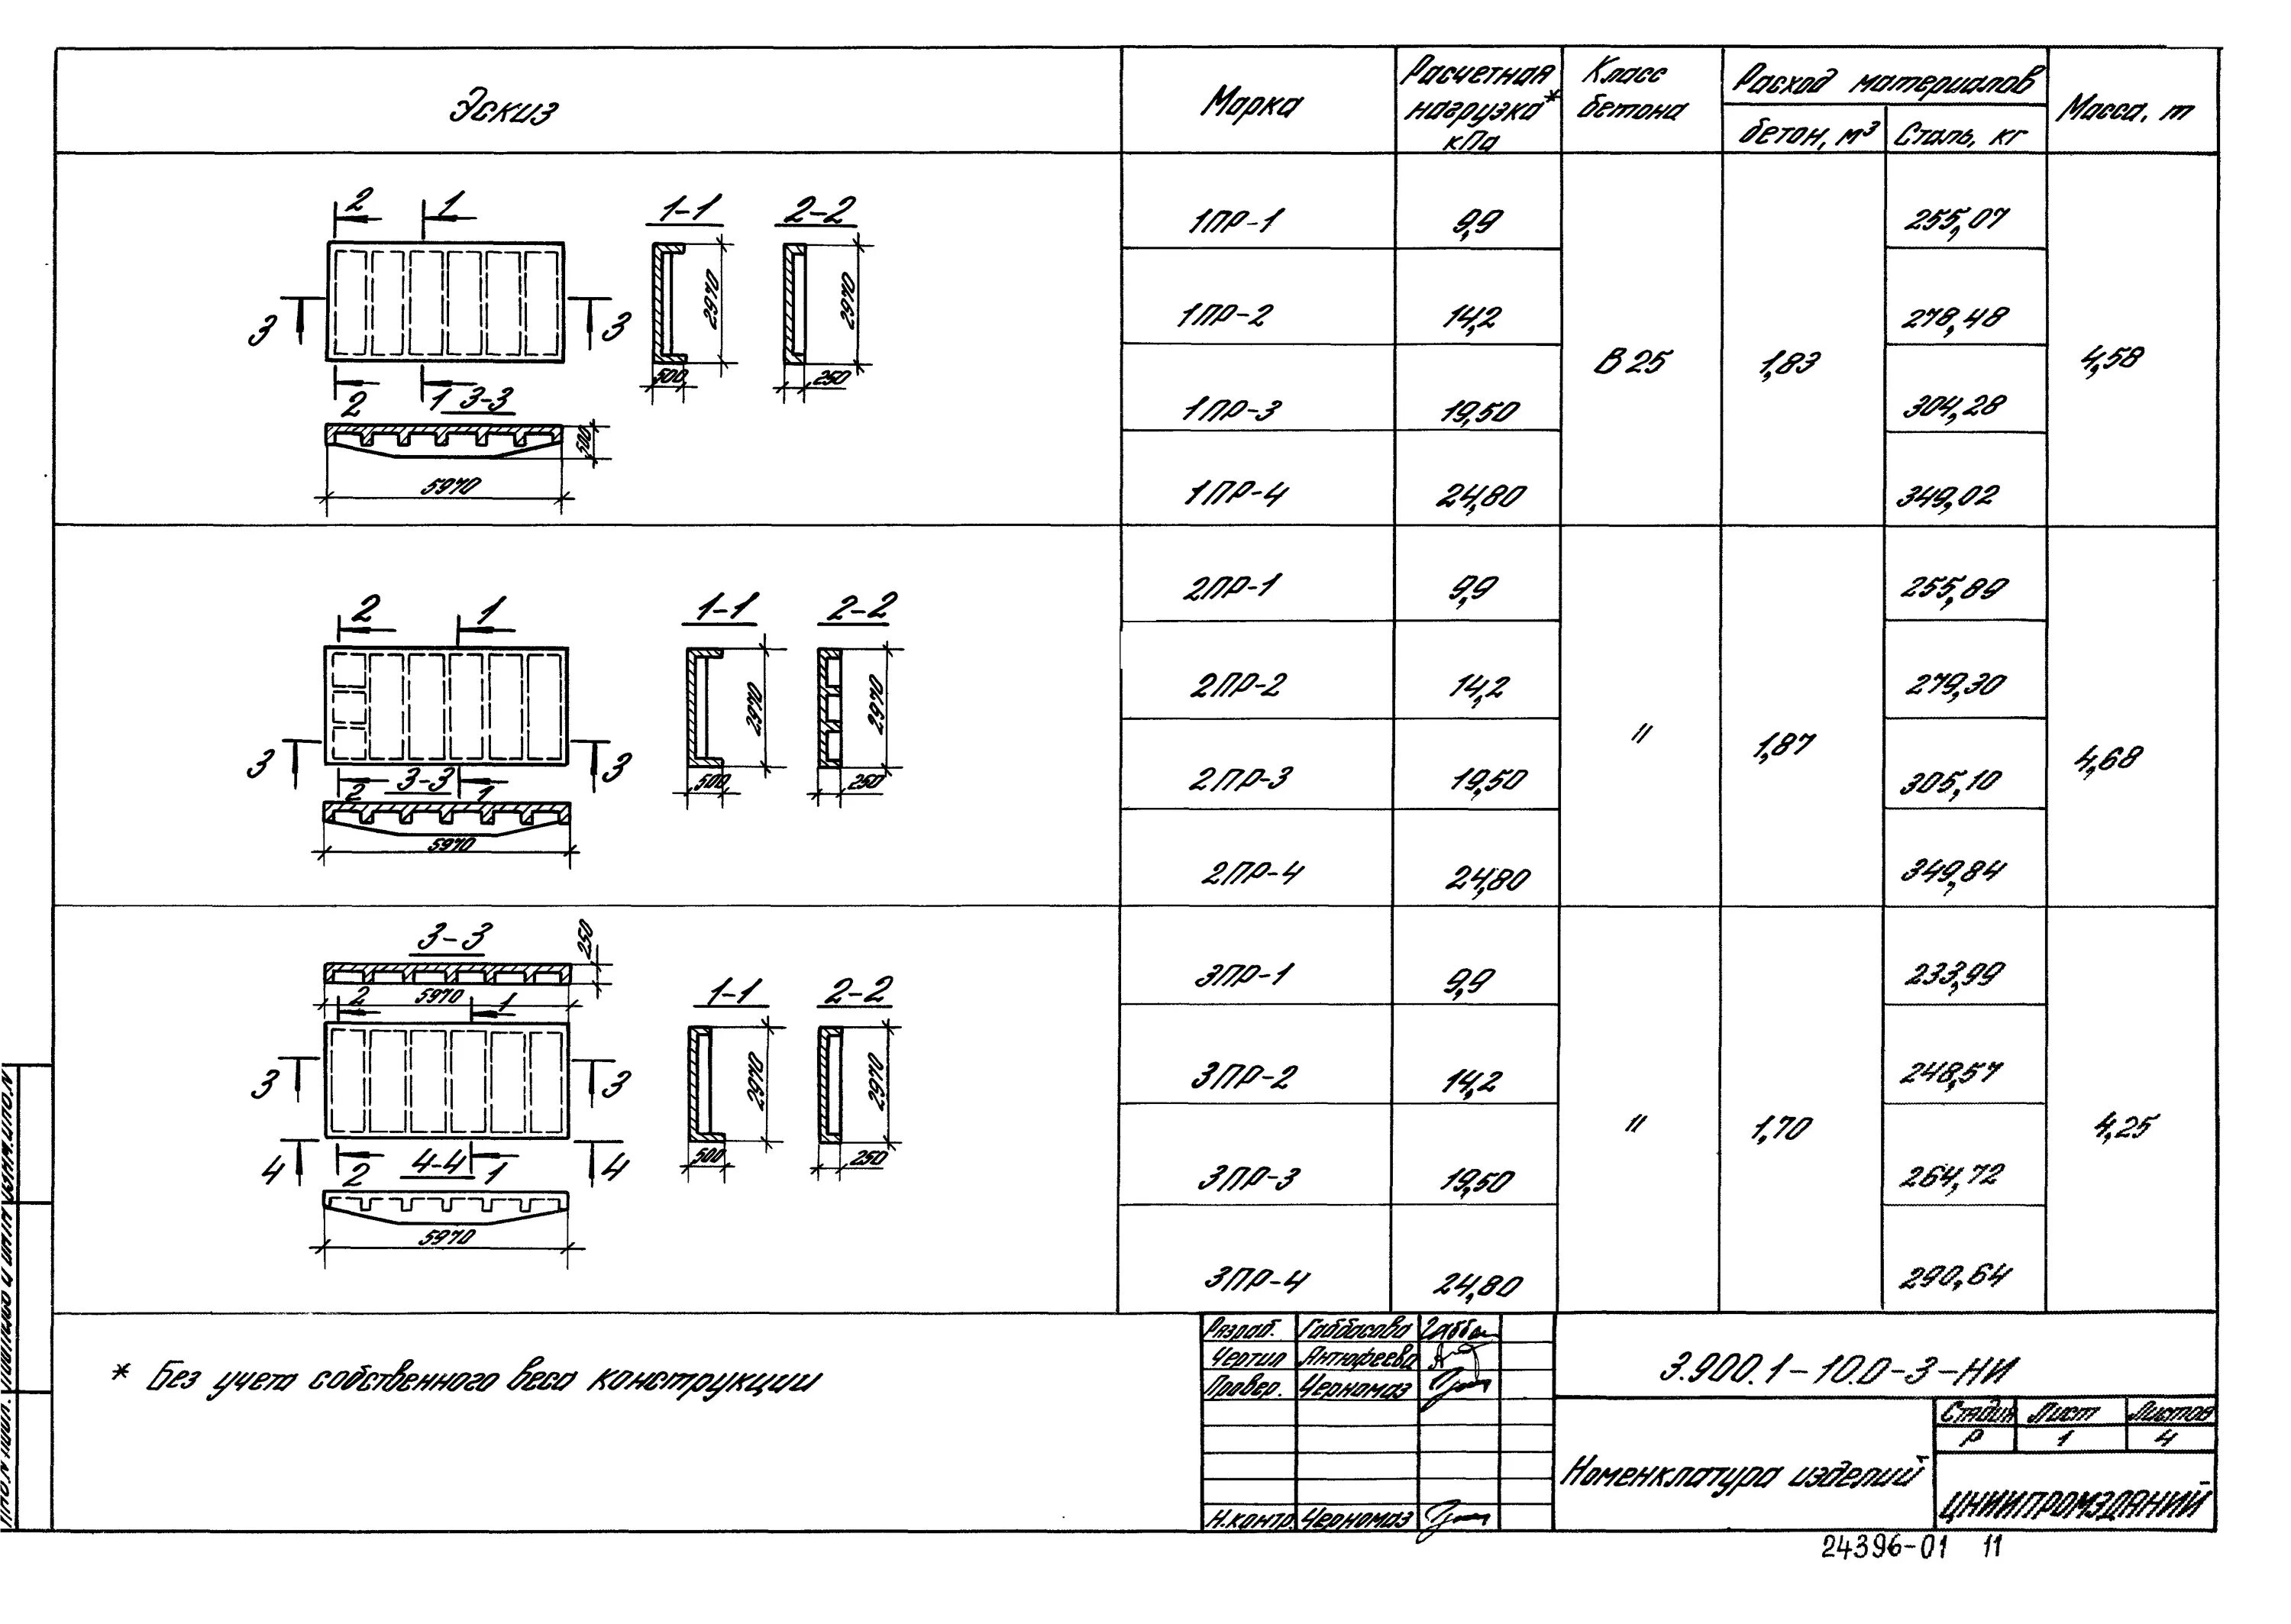 Эскиз
Марка
Расчетная нагрузка* кПа
Класс бетона
Расход материалов
бетон, м³
Сталь, кг
Масса, т
2 1
3 3
2 1
1-1
2970
500
2-2
2970
250
3-3
500
5970
1ПР-1 9,9 255,07
1ПР-2 14,2 278,48
В 25 1,83 4,58
1ПР-3 19,50 304,28
1ПР-4 24,80 349,02
2 1
3 3
2 1
1-1
2970
500
2-2
2970
250
3-3
5970
2ПР-1 9,9 255,89
2ПР-2 14,2 279,30
" 1,87 4,68
2ПР-3 19,50 305,10
2ПР-4 24,80 349,84
3-3
250
5970
2 1
3 3
4 4
2 1
1-1
2970
500
2-2
2970
250
4-4
5970
3ПР-1 9,9 233,99
3ПР-2 14,2 248,57
" 1,70 4,25
3ПР-3 19,50 264,72
3ПР-4 24,80 290,64
* Без учета собственного веса конструкции
Разраб. Габбасова
Чертил Антюфеева
Провер. Черномаз
Н.контр. Черномаз
3.900.1-10.0-3-НИ
Номенклатура изделий
Стадия Лист Листов
Р 1 4
ЦНИИПРОМЗДАНИЙ
24396-01 11